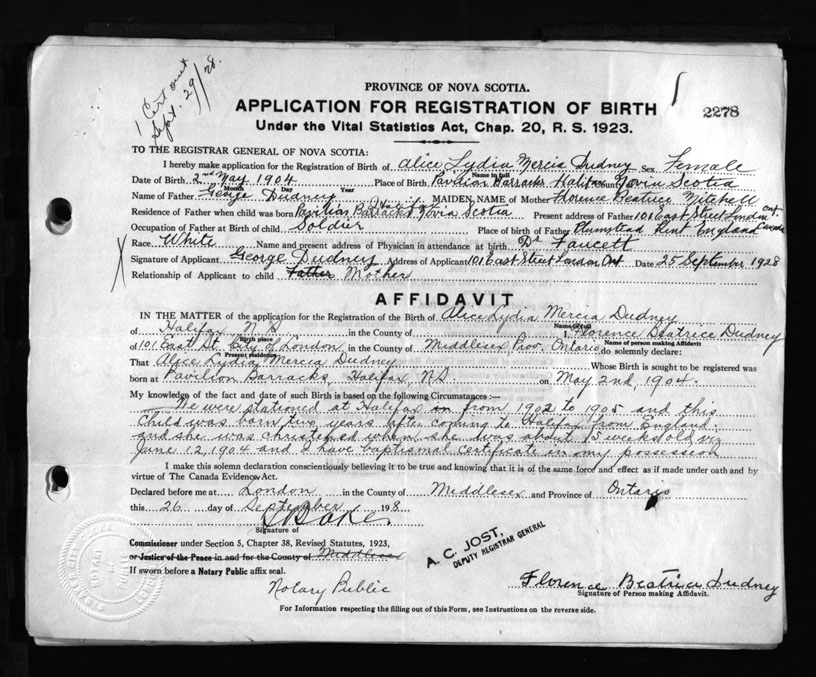 1 Cert out
Sept. 29/28.
PROVINCE OF NOVA SCOTIA.
APPLICATION FOR REGISTRATION OF BIRTH
2278
Under the Vital Statistics Act, Chap. 20, R. S. 1923.
TO THE REGISTRAR GENERAL OF NOVA SCOTIA:
I hereby make application for the Registration of Birth of Alice Lydia Mercia Dudney Sex Female
Name in full
Date of Birth 2nd May 1904 Place of Birth Pavilian Barracks Halifax County Novia Scotia
Month Day Year
Name of Father George Dudney MAIDEN NAME of Mother Florence Beatrice Mitchell
Residence of Father when child was born Pavilias Barracks Halifax Novia Scotia Present address of Father 101 East Street London Ont. Canada
Occupation of Father at Birth of child Soldier Place of birth of Father Plumstead Kent England
Race White Name and present address of Physician in attendance at birth Dr Faucett
Signature of Applicant George Dudney Address of Applicant 101 East Street London Ont Date 25 September 1928
Relationship of Applicant to child Father Mother
AFFIDAVIT
IN THE MATTER of the application for the Registration of the Birth of Alice Lydia Mercia Dudney
Name in full
of Halifax N S in the County of I, Florence Beatrice Dudney
Birth place Name of person making Affidavit
of 101 East St City of London in the County of Middlesex Prov. Ontario do solemnly declare:
Present residence
That Alice Lydia Mercia Dudney Whose Birth is sought to be registered was
born at Pavilion Barracks, Halifax, NS. on May 2nd 1904.
My knowledge of the fact and date of such Birth is based on the following Circumstances :—
We were stationed at Halifax on from 1902 to 1905 and this
Child was born two years after coming to Halifax from England.
and she was christened when she was about 15 weeks old viz
June 12, 1904 and I have baptismal certificate in my possession
I make this solemn declaration conscientiously believing it to be true and knowing that it is of the same force and effect as if made under oath and by
virtue of The Canada Evidence Act.
Declared before me at London in the County of Middlesex and Province of Ontario
this 26 day of September 19 8
Signature of
Commissioner under Section 5, Chapter 38, Revised Statutes, 1923,
or Justice of the Peace in and for the County of Middlesex
If sworn before a Notary Public affix seal.
Notary Public
A. C. JOST,
DEPUTY REGISTRAR GENERAL
Florence Beatrice Dudney
Signature of Person making Affidavit.
For Information respecting the filling out of this Form, see Instructions on the reverse side.